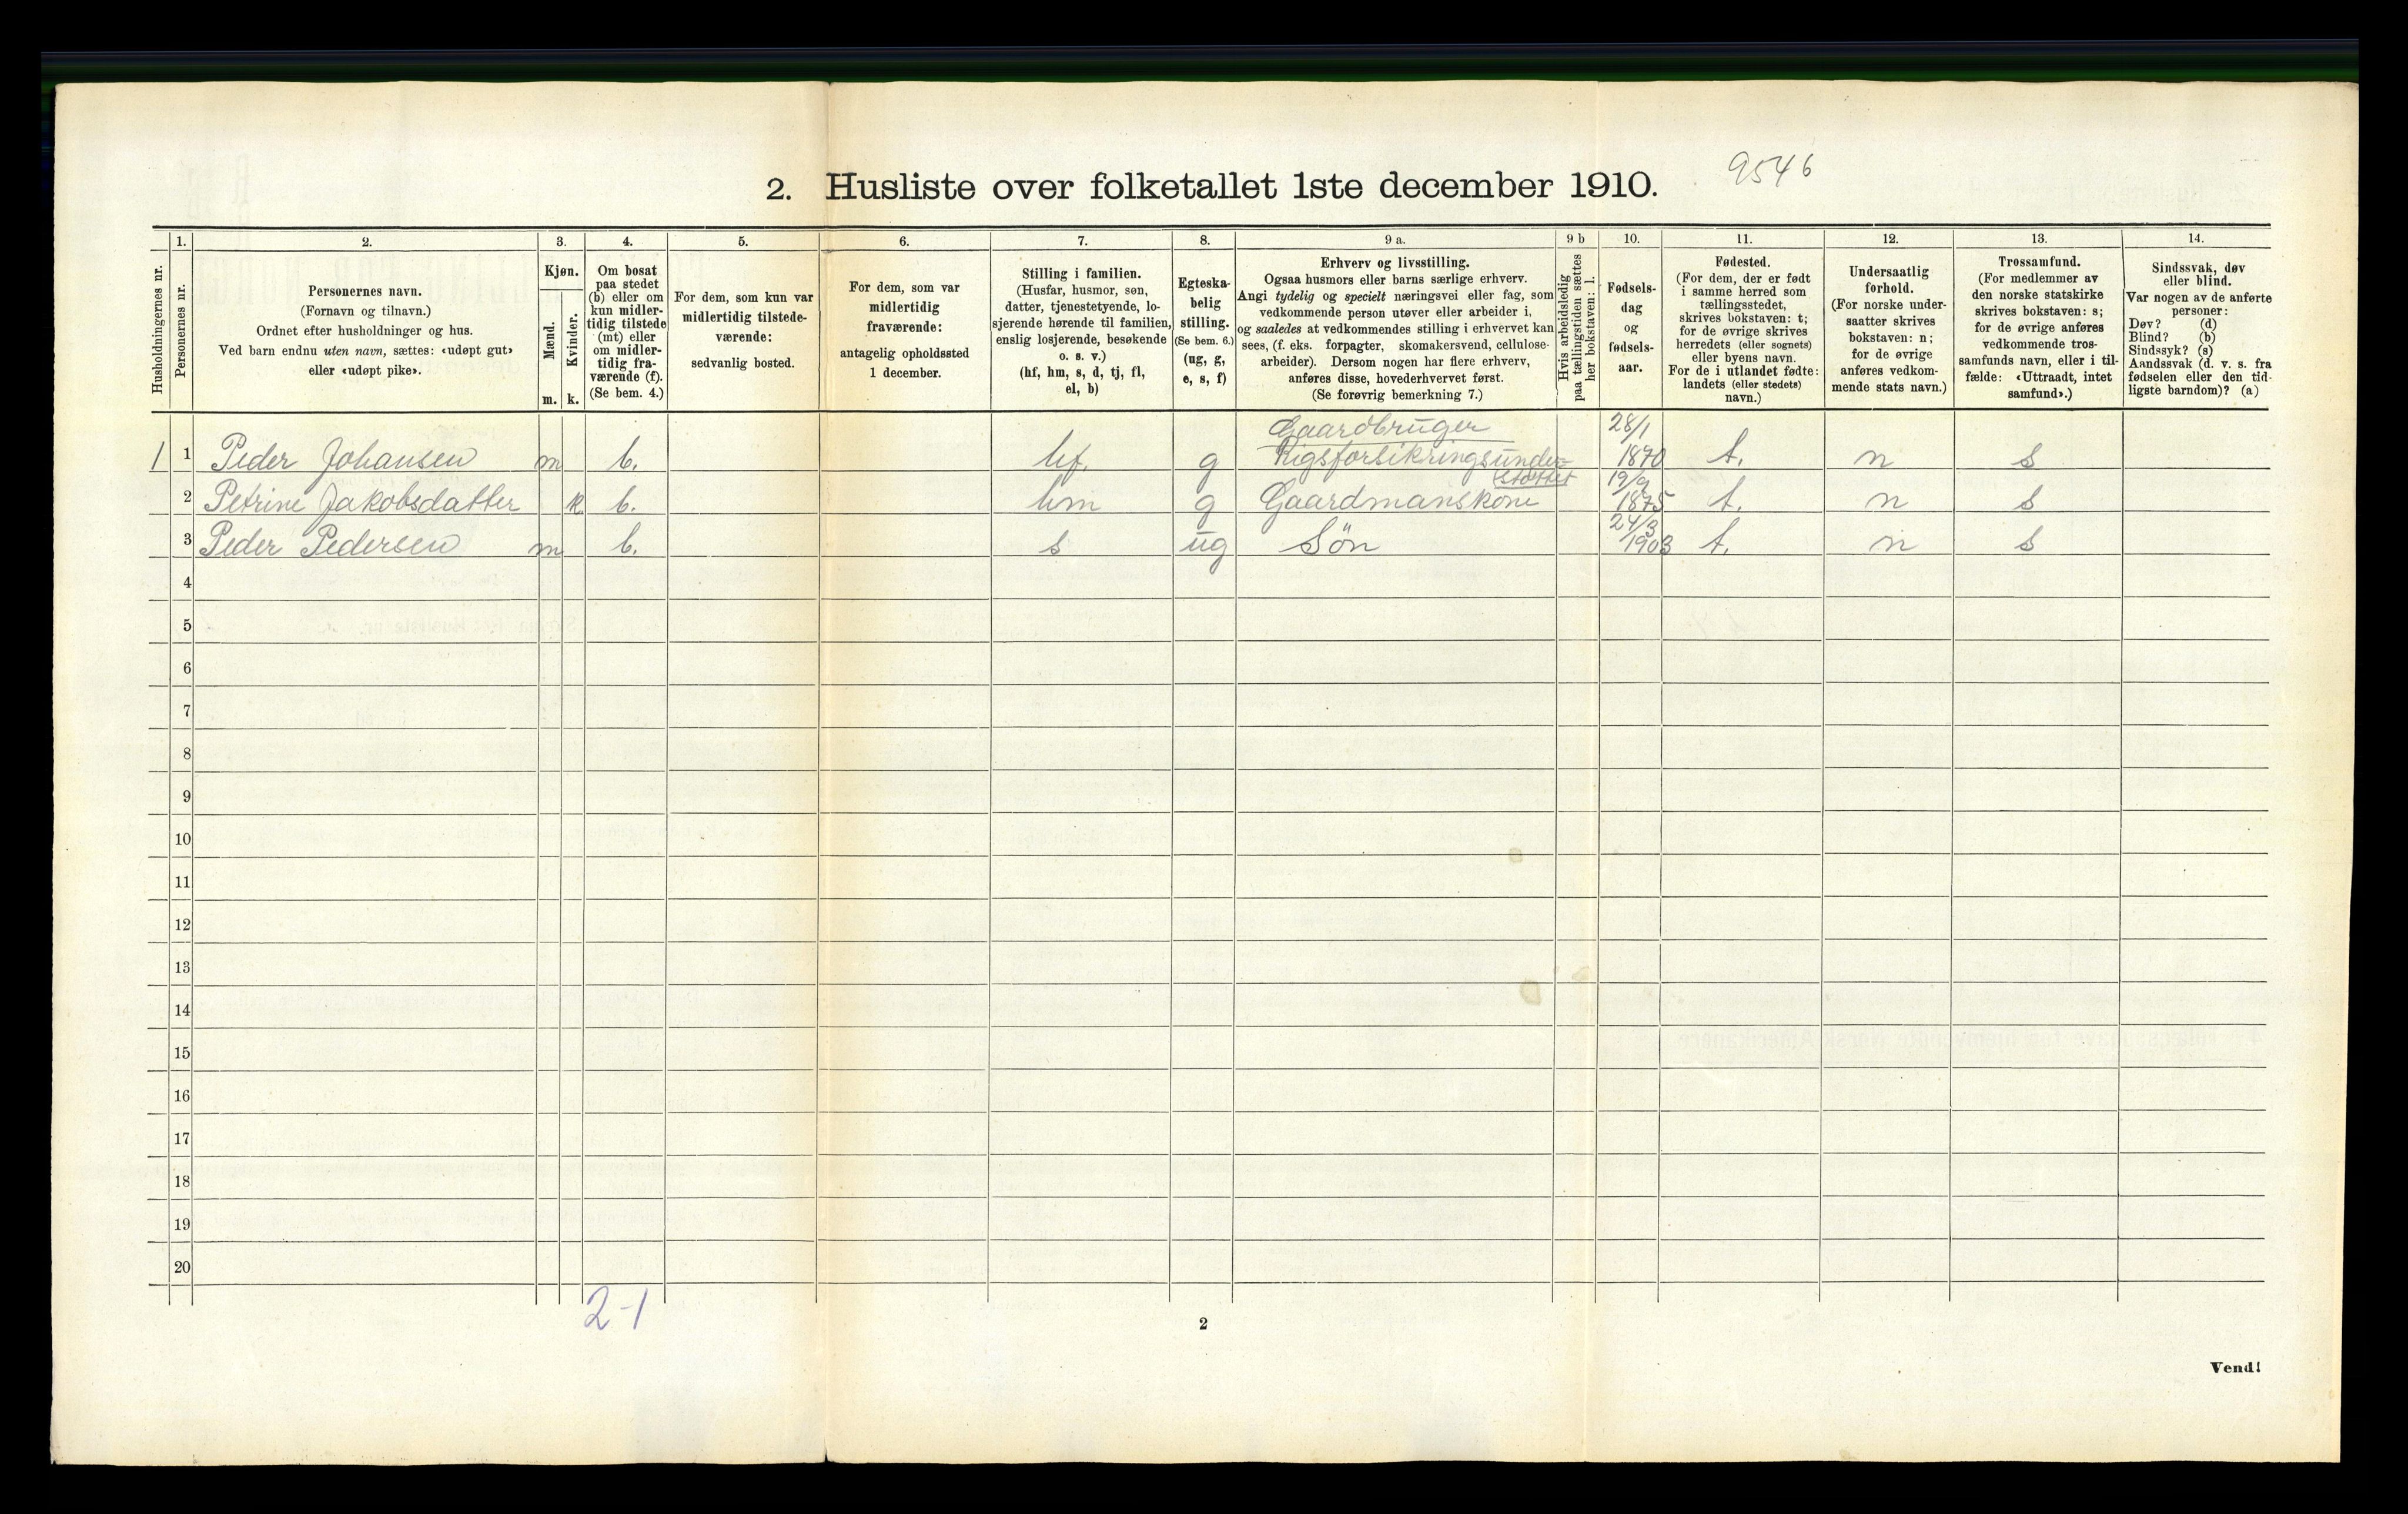 2. Husliste over folketallet 1ste december 1910.
9546
Husholdningernes nr.
1.
Personernes nr.
2.
Personernes navn.
(Fornavn og tilnavn.)
Ordnet efter husholdninger og hus.
Ved barn endnu uten navn, sættes: «udøpt gut»
eller «udøpt pike».
3.
Kjøn.
Mænd.
m.
Kvinder.
k.
4.
Om bosat
paa stedet
(b) eller om
kun midler-
tidig tilstede
(mt) eller
om midler-
tidig fra-
værende (f).
(Se bem. 4.)
5.
For dem, som kun var
midlertidig tilstede-
værende:
sedvanlig bosted.
6.
For dem, som var
midlertidig
fraværende:
antagelig opholdssted
1 december.
7.
Stilling i familien.
(Husfar, husmor, søn,
datter, tjenestetyende, lo-
sjerende hørende til familien,
enslig losjerende, besøkende
o. s. v.)
(hf, hm, s, d, tj, fl,
el, b)
8.
Egteska-
belig
stilling.
(Se bem. 6.)
(ug, g,
e, s, f)
9 a.
Erhverv og livsstilling.
Ogsaa husmors eller barns særlige erhverv.
Angi tydelig og specielt næringsvei eller fag, som
vedkommende person utøver eller arbeider i,
og saaledes at vedkommendes stilling i erhvervet kan
sees, (f. eks. forpagter, skomakersvend, cellulose-
arbeider). Dersom nogen har flere erhverv,
anføres disse, hovederhvervet først.
(Se forøvrig bemerkning 7.)
9 b
Hvis arbeidsledig
paa tællingstiden sættes
her bokstaven: l.
10.
Fødsels-
dag
og
fødsels-
aar.
11.
Fødested.
(For dem, der er født
i samme herred som
tællingsstedet,
skrives bokstaven: t;
for de øvrige skrives
herredets (eller sognets)
eller byens navn.
For de i utlandet fødte:
landets (eller stedets)
navn.)
12.
Undersaatlig
forhold.
(For norske under-
saatter skrives
bokstaven: n;
for de øvrige
anføres vedkom-
mende stats navn.)
13.
Trossamfund.
(For medlemmer av
den norske statskirke
skrives bokstaven: s;
for de øvrige anføres
vedkommende tros-
samfunds navn, eller i til-
fælde: «Uttraadt, intet
samfund».)
14.
Sindssvak, døv
eller blind.
Var nogen av de anførte
personer:
Døv? (d)
Blind? (b)
Sindssyk? (s)
Aandssvak (d. v. s. fra
fødselen eller den tid-
ligste barndom)? (a)
Gaardbruger 28/1
1 1 Peder Johansen m b. hf. g Rigsforsikringsunder- 1870 t. n s
støttet 19/9
2 Petrine Jakobsdatter k b. hm g Gaardmanskone 1875 t. n s
24/3
3 Peder Pedersen m b. s ug Søn 1903 t. n s
4
5
6
7
8
9
10
11
12
13
14
15
16
17
18
19
20
2-1
2
Vend!